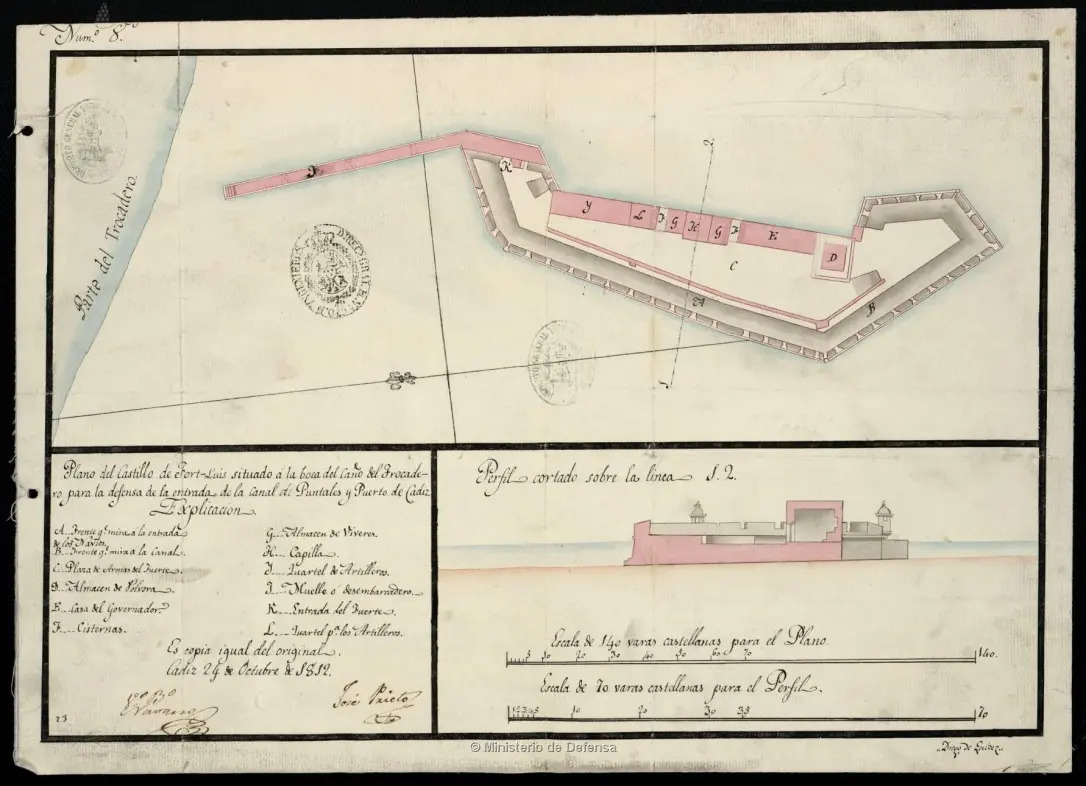 Num.º 8.
Parte del Trocadero.
J
K
Y
L
F
G
H
G
F
E
D
C
A
B
2
1
Plano del Castillo de Fort-Luis situado á la boca del Caño del Trocade-
ro para la defensa de la entrada de la Canal de Puntales y Puerto de Cadiz.
Explicacion.
A. Frente q.e mira á la entrada
de los Navios.
B. Frente q.e mira á la Canal.
C. Plaza de Armas del Fuerte.
D. Almacen de Polvora.
E. Casa del Governador.
F. Cisternas.
G. Almacen de Viveres.
H. Capilla.
Y. Quartel de Artilleros.
J. Muelle o desembarcadero.
K. Entrada del Fuerte.
L. Quartel p.a los Artilleros.
Es copia igual del original.
Cadiz 24 de Octubre de 1812.
V.º B.º
Navarro
José Prieto
23
Perfil cortado sobre la linea 1. 2.
Escala de 140 varas castellanas para el Plano.
5 10 20 30 40 50 60 70 140.
Escala de 70 varas castellanas para el Perfil.
1 2 3 4 5 10 20 30 35 70
© Ministerio de Defensa
Diego de